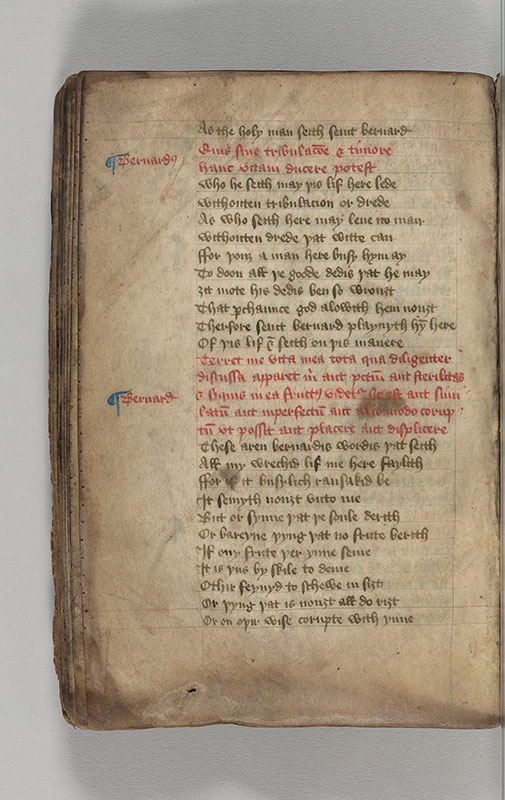 As the holy man seith seint bernard
¶ Bernardus
Quis sine tribulacõe & timore
hanc vitam ducere potest
Who he seith may þis lif here lede
withouten tribulacion or drede
As who seith here may leue no man
withouten drede þat witte can
ffor þouȝ a man here busy hym ay
To doon all þe goode dedis þat he may
ȝit mote his dedis ben so wrouȝt
That pchaunce god alowith hem nouȝt
Therfore seint bernard playnyth hȳ here
Of þis lif & seith on þis manere
Terret me vita mea tota qua diligenter
discussa apparet m aut pctm̄ aut sterilitas
¶ Bernard
& siquis in ea fructus videtur sic est aut simu
latū aut inperfectū aut alio modo corup
tū vt possit aut placere aut displicere
These aren bernardis wordis þat seith
All my wrechid lif me here faylith
ffor if it busylich ransakid be
It semyth nouȝt vnto me
But or synne þat þe soule derith
Or bareyne þyng þat no frute berith
If ony frute þer ynne seme
It is þus by skile to deme
Othir feynyd to schewe in siȝt
Or þyng þat is nouȝt all do riȝt
Or on oþir wise corupte with ynne